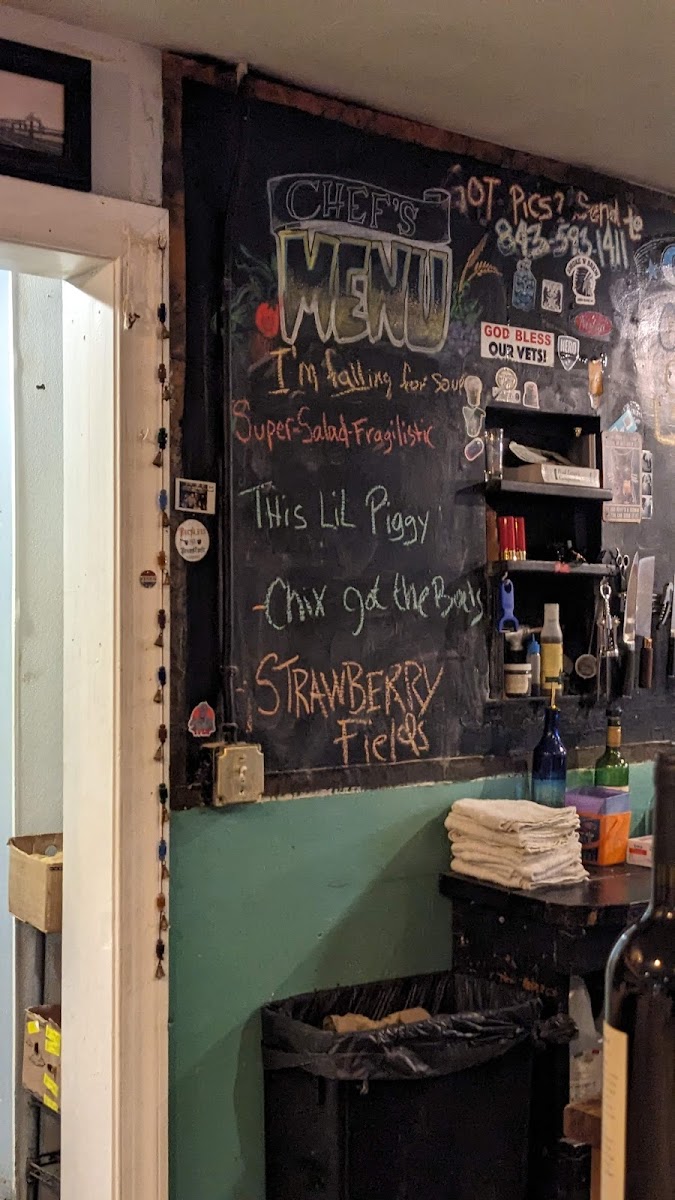 CHEF'S
MENU
GOT Pics? Send to
843-593-1411
GOD BLESS
OUR VETS!
HERO
I'm falling for soup
Super-Salad-Fragilistic
THis LiL Piggy
-Chix got the Beets
STRAWBERRY
Fields